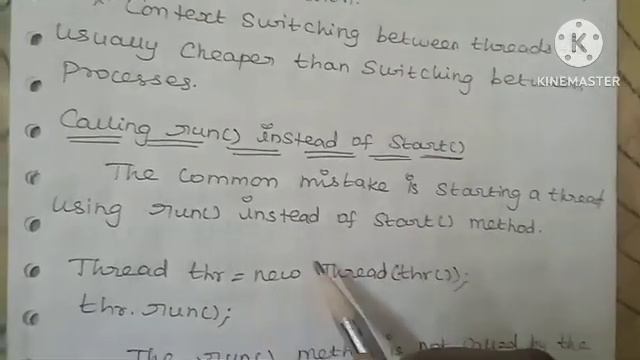 Context Switching between threads
usually cheaper than switching between
Processes.
KINEMASTER
Calling run() instead of Start()
The common mistake is starting a thread
using run() instead of start() method.
Thread thr = new Thread(thr());
thr.run();
The run() method is not called by the